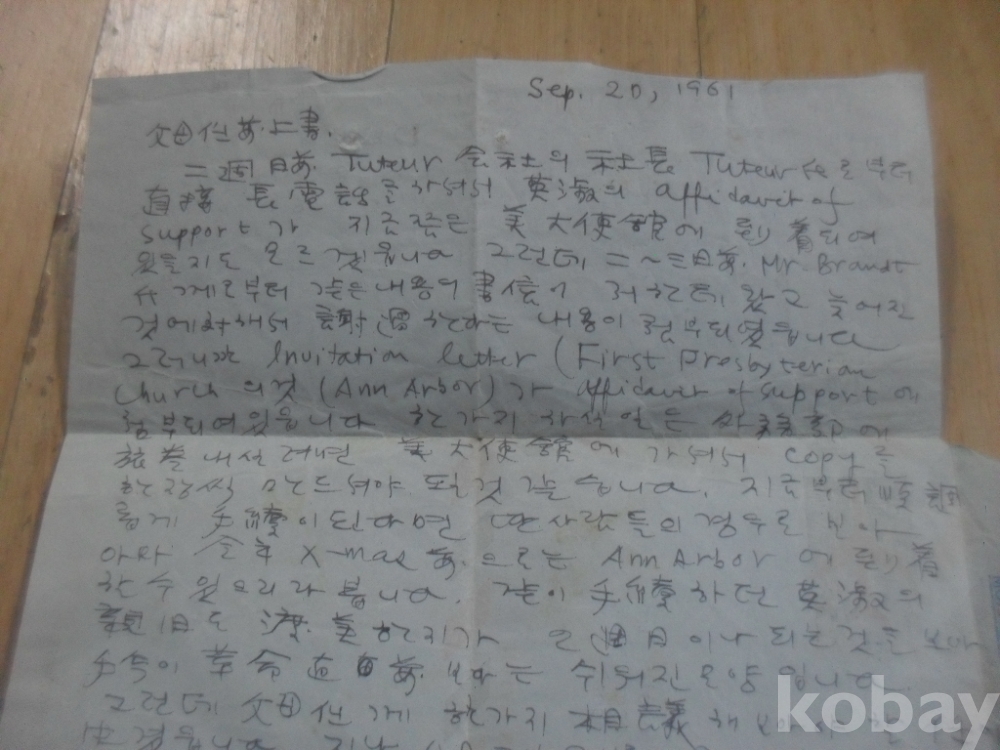 Sep. 20, 1961
父母任前上書.
二週日前 Tuteur 会社의 社長 Tuteur 氏로부터
直接 長電話를 하셔서 英淑의 affidavit of
support가 지금쯤은 美大使館에 到着되여
있을지도 모르겠읍니다 그런데 二~三日前 Mr. Brandt
에게로부터 같은 내용의 書信이 저한테 왔고 늦어진
것에 대해서 謝過한다는 내용이 첨부되였읍니다
그러니까 Invitation letter (First Presbyterian
Church 의것 (Ann Arbor)가 affidavit of support에
첨부되여있읍니다 한가지 하실일은 外務部에
旅券내실려면 美大使館에 가셔서 copy를
한장씩 만드셔야 될것 같습니다. 지금부터 順調
롭게 手續이 된다면 딴사람들의 경우로 보아
아마 今年 X-mas 前으로는 Ann Arbor 에 到着
할수 있으리라 봅니다. 같이 手續하던 英淑의
親旧도 渡美한지가 2週日이나 되는것을 보아
手续이 革命直前 보다는 쉬워진모양입니다
그런데 父母任께 한가지 相議해
kobay